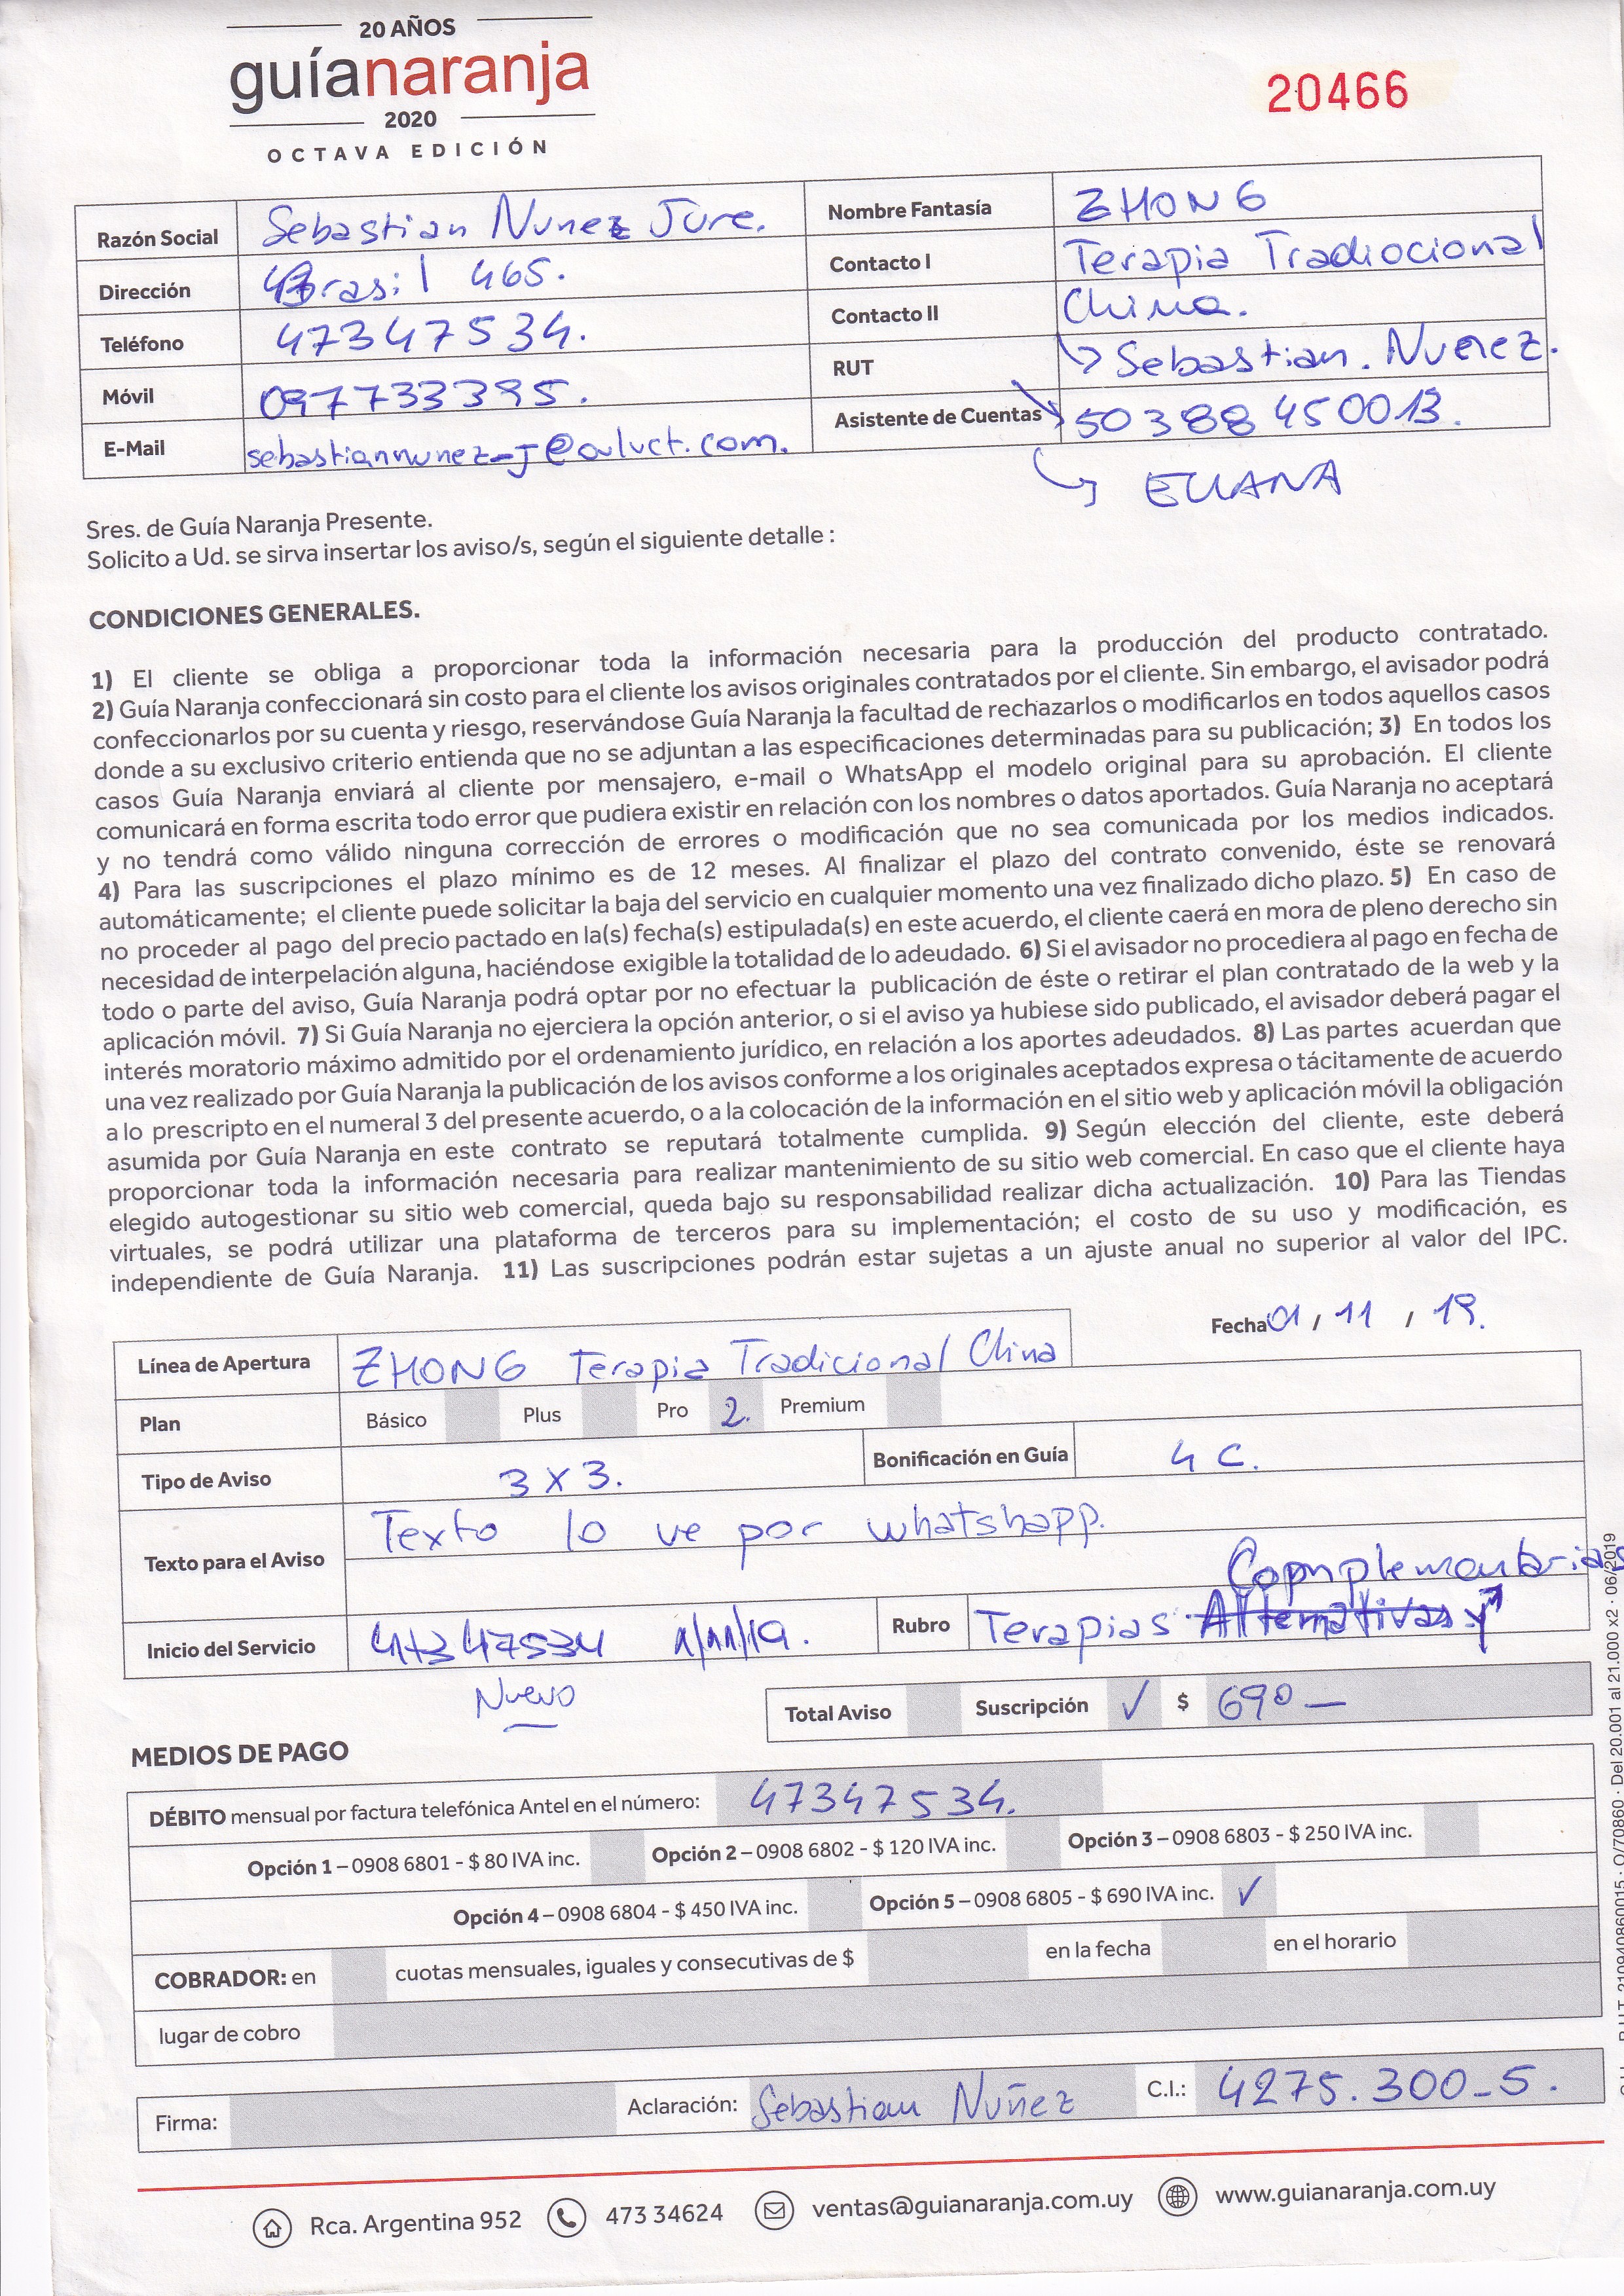 20 AÑOS
guíanaranja
2020
OCTAVA EDICIÓN
20466
Razón Social Sebastian Nunez Jure.
Dirección Brasil 465.
Teléfono 47347534.
Móvil 097733395.
E-Mail
Nombre Fantasía ZHONG
Contacto I Terapia Tradiocional
Contacto II China.
RUT Sebastian. Nunez.
Asistente de Cuentas 50388450013.
ELIANA
Sres. de Guía Naranja Presente.
Solicito a Ud. se sirva insertar los aviso/s, según el siguiente detalle :
CONDICIONES GENERALES.
1) El cliente se obliga a proporcionar toda la información necesaria para la producción del producto contratado.
2) Guía Naranja confeccionará sin costo para el cliente los avisos originales contratados por el cliente. Sin embargo, el avisador podrá
confeccionarlos por su cuenta y riesgo, reservándose Guía Naranja la facultad de rechazarlos o modificarlos en todos aquellos casos
donde a su exclusivo criterio entienda que no se adjuntan a las especificaciones determinadas para su publicación; 3) En todos los
casos Guía Naranja enviará al cliente por mensajero, e-mail o WhatsApp el modelo original para su aprobación. El cliente
comunicará en forma escrita todo error que pudiera existir en relación con los nombres o datos aportados. Guía Naranja no aceptará
y no tendrá como válido ninguna corrección de errores o modificación que no sea comunicada por los medios indicados.
4) Para las suscripciones el plazo mínimo es de 12 meses. Al finalizar el plazo del contrato convenido, éste se renovará
automáticamente; el cliente puede solicitar la baja del servicio en cualquier momento una vez finalizado dicho plazo. 5) En caso de
no proceder al pago del precio pactado en la(s) fecha(s) estipulada(s) en este acuerdo, el cliente caerá en mora de pleno derecho sin
necesidad de interpelación alguna, haciéndose exigible la totalidad de lo adeudado. 6) Si el avisador no procediera al pago en fecha de
todo o parte del aviso, Guía Naranja podrá optar por no efectuar la publicación de éste o retirar el plan contratado de la web y la
aplicación móvil. 7) Si Guía Naranja no ejerciera la opción anterior, o si el aviso ya hubiese sido publicado, el avisador deberá pagar el
interés moratorio máximo admitido por el ordenamiento jurídico, en relación a los aportes adeudados. 8) Las partes acuerdan que
una vez realizado por Guía Naranja la publicación de los avisos conforme a los originales aceptados expresa o tácitamente de acuerdo
a lo prescripto en el numeral 3 del presente acuerdo, o a la colocación de la información en el sitio web y aplicación móvil la obligación
asumida por Guía Naranja en este contrato se reputará totalmente cumplida. 9) Según elección del cliente, este deberá
proporcionar toda la información necesaria para realizar mantenimiento de su sitio web comercial. En caso que el cliente haya
elegido autogestionar su sitio web comercial, queda bajo su responsabilidad realizar dicha actualización. 10) Para las Tiendas
virtuales, se podrá utilizar una plataforma de terceros para su implementación; el costo de su uso y modificación, es
independiente de Guía Naranja. 11) Las suscripciones podrán estar sujetas a un ajuste anual no superior al valor del IPC.
Fecha 01 / 11 / 19.
Línea de Apertura ZHONG Terapia Tradicional China
Plan Básico Plus Pro 2. Premium
Tipo de Aviso 3 x 3. Bonificación en Guía 4 C.
Texto para el Aviso Texto lo ve por whatshapp.
Complementarias
Inicio del Servicio 47347534 1/11/19. Rubro Terapias Alternativas y
Nuevo
Total Aviso Suscripción ✓ $ 690 —
MEDIOS DE PAGO
DÉBITO mensual por factura telefónica Antel en el número: 47347534.
Opción 1 – 0908 6801 - $ 80 IVA inc. Opción 2 – 0908 6802 - $ 120 IVA inc. Opción 3 – 0908 6803 - $ 250 IVA inc.
Opción 4 – 0908 6804 - $ 450 IVA inc. Opción 5 – 0908 6805 - $ 690 IVA inc. ✓
COBRADOR: en cuotas mensuales, iguales y consecutivas de $ en la fecha en el horario
lugar de cobro
Firma: Aclaración: Sebastian Nuñez C.I.: 4275.300-5.
Rca. Argentina 952 473 34624 ventas@guianaranja.com.uy www.guianaranja.com.uy
R.U.T. 210940860015 · O/70860 · Del 20.001 al 21.000 x2 · 06/2019